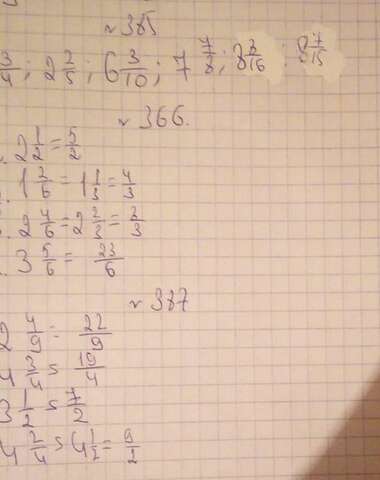 № 385
3/4; 2 2/5; 6 3/10; 7 7/8; 8 3/16; 8 7/15
№ 366.
2 1/2 = 5/2
1 2/6 = 1 1/3 = 4/3
2 4/6 = 2 2/3 = 2/3
3 5/6 = 23/6
№ 387
2 4/9 = 22/9
4 3/4 = 19/4
3 1/2 = 7/2
4 2/4 = 4 1/2 = 9/2